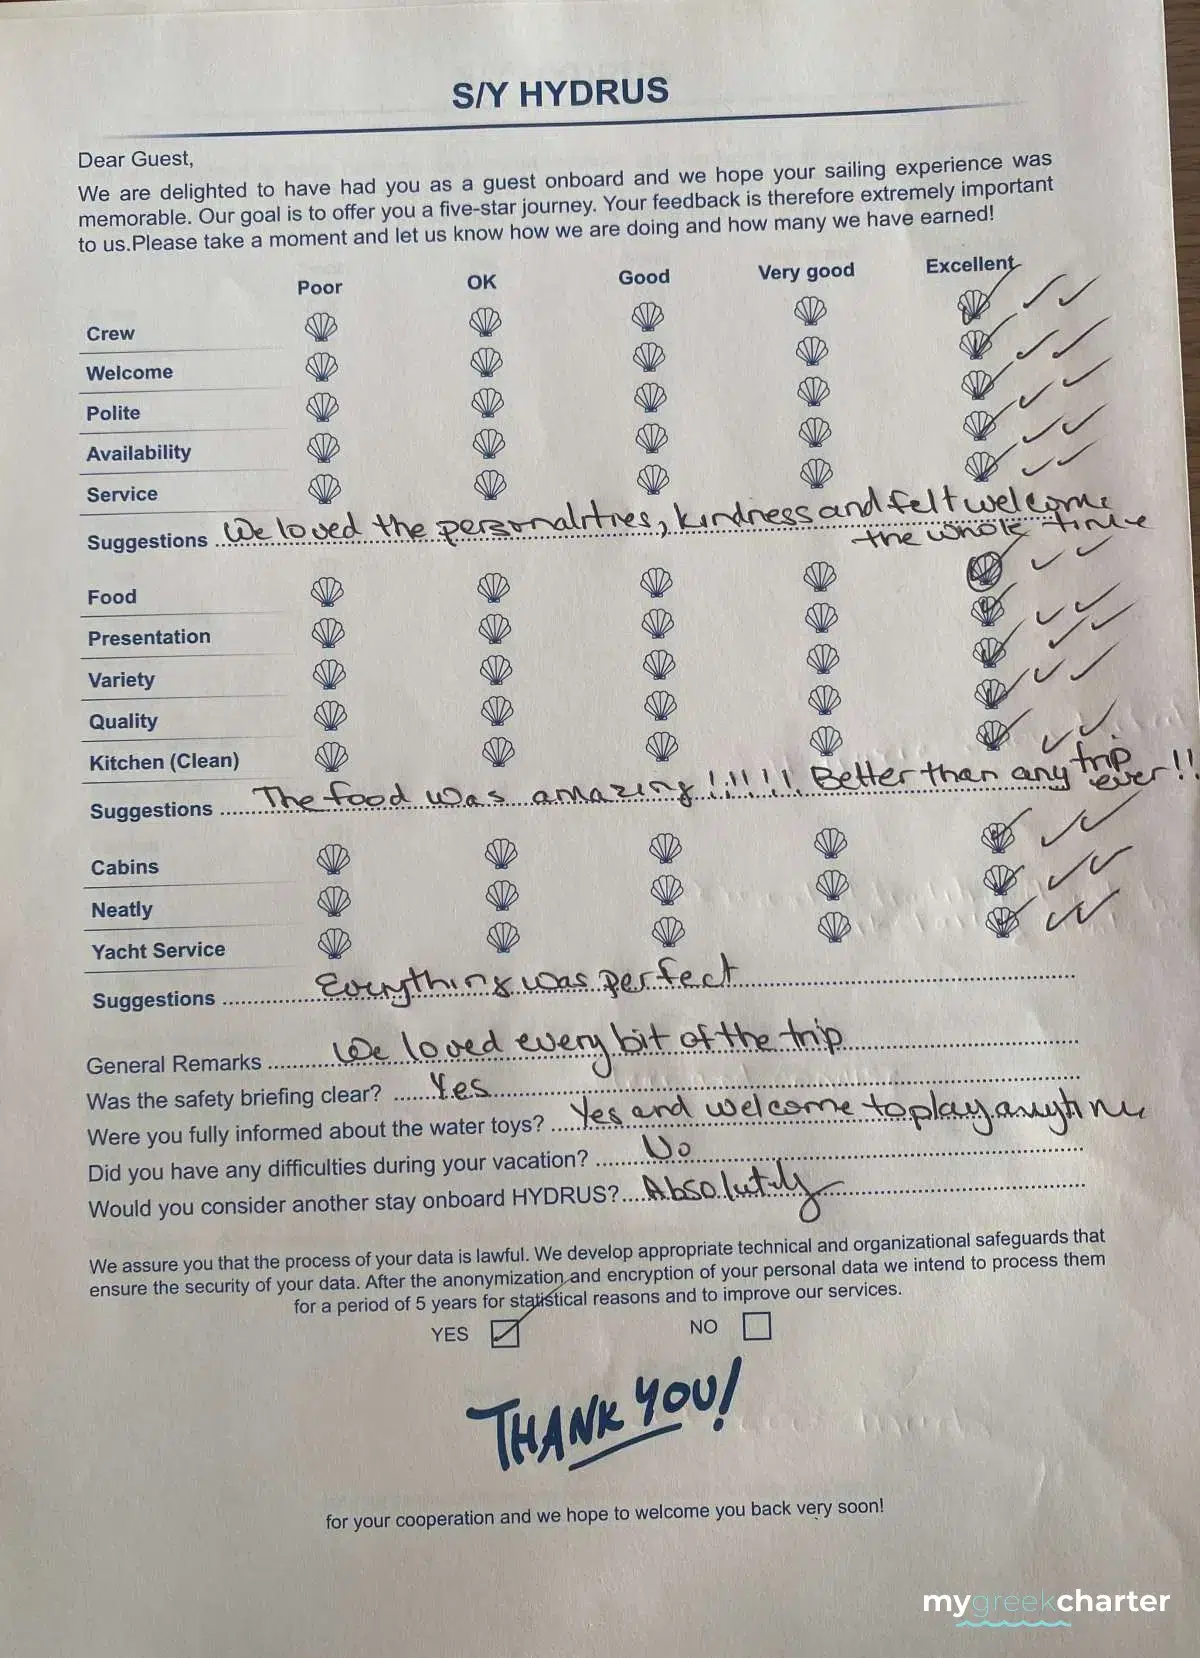 S/Y HYDRUS
Dear Guest,
We are delighted to have had you as a guest onboard and we hope your sailing experience was
memorable. Our goal is to offer you a five-star journey. Your feedback is therefore extremely important
to us.Please take a moment and let us know how we are doing and how many we have earned!
Poor OK Good Very good Excellent
Crew
Welcome
Polite
Availability
Service
Suggestions We loved the personalities, kindness and felt welcome
the whole time
Food
Presentation
Variety
Quality
Kitchen (Clean)
Suggestions The food was amazing!!!!!! Better than any trip
ever!!
Cabins
Neatly
Yacht Service
Suggestions Everything was perfect
General Remarks We loved every bit of the trip
Was the safety briefing clear? Yes
Were you fully informed about the water toys? Yes and welcome to play anytime
Did you have any difficulties during your vacation? No
Would you consider another stay onboard HYDRUS? Absolutely
We assure you that the process of your data is lawful. We develop appropriate technical and organizational safeguards that
ensure the security of your data. After the anonymization and encryption of your personal data we intend to process them
for a period of 5 years for statistical reasons and to improve our services.
YES NO
THANK YOU!
for your cooperation and we hope to welcome you back very soon!
mygreekcharter